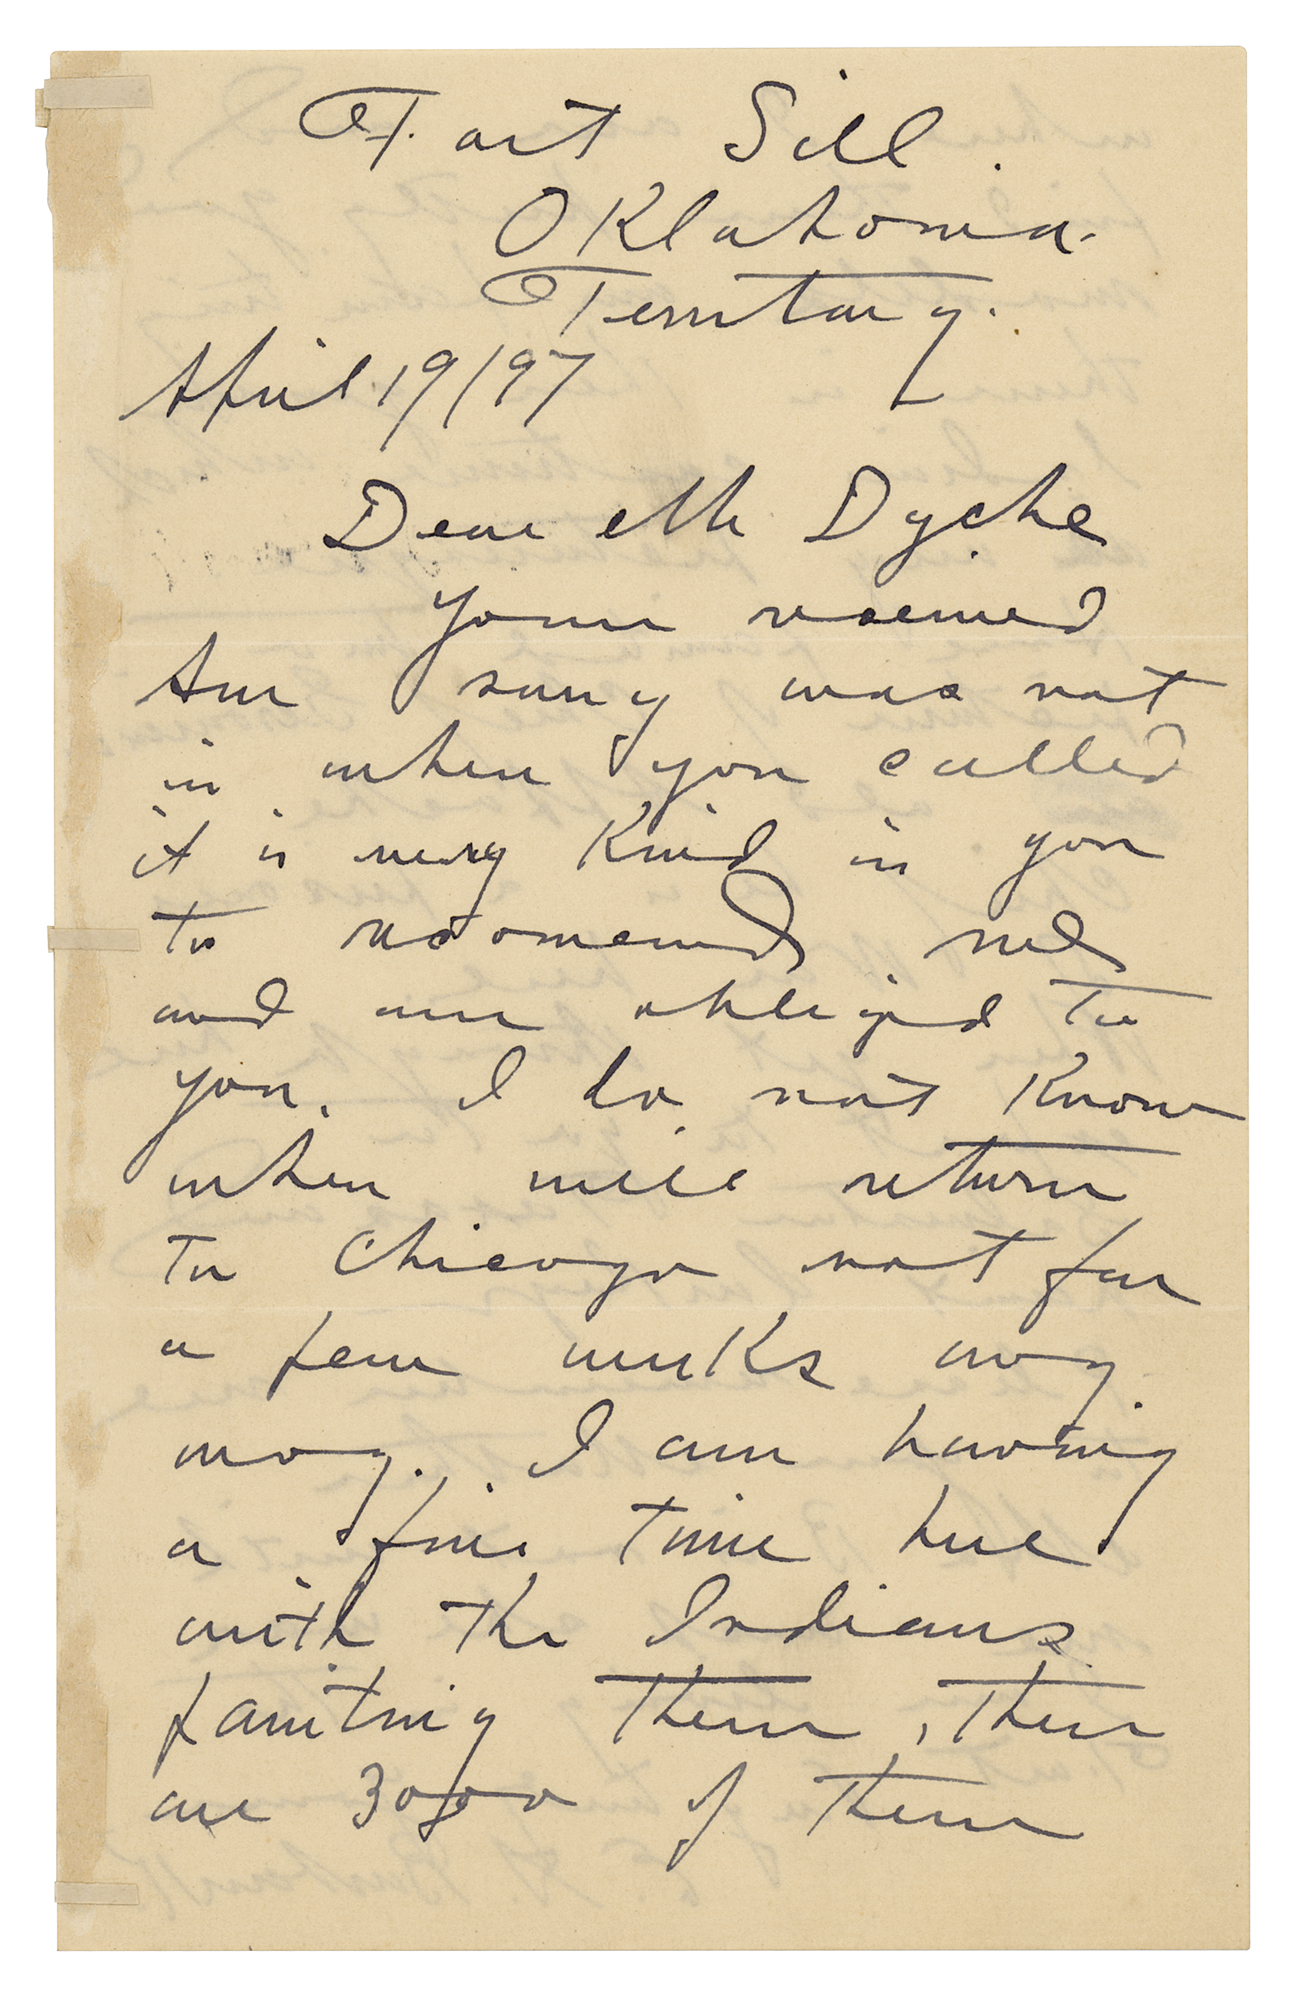 Fort Sill.
Oklahoma.
Territory.
April 19/97
Dear Mr Dyche
Your received
Am sorry was not
in when you called
it is very Kind in you
to recomend me
and am obliged to
you. I do not Know
when will return
to Chicago not for
a few weeks any
way. I am having
a fine time here
with the Indians
painting them, ther
are 3000 of them